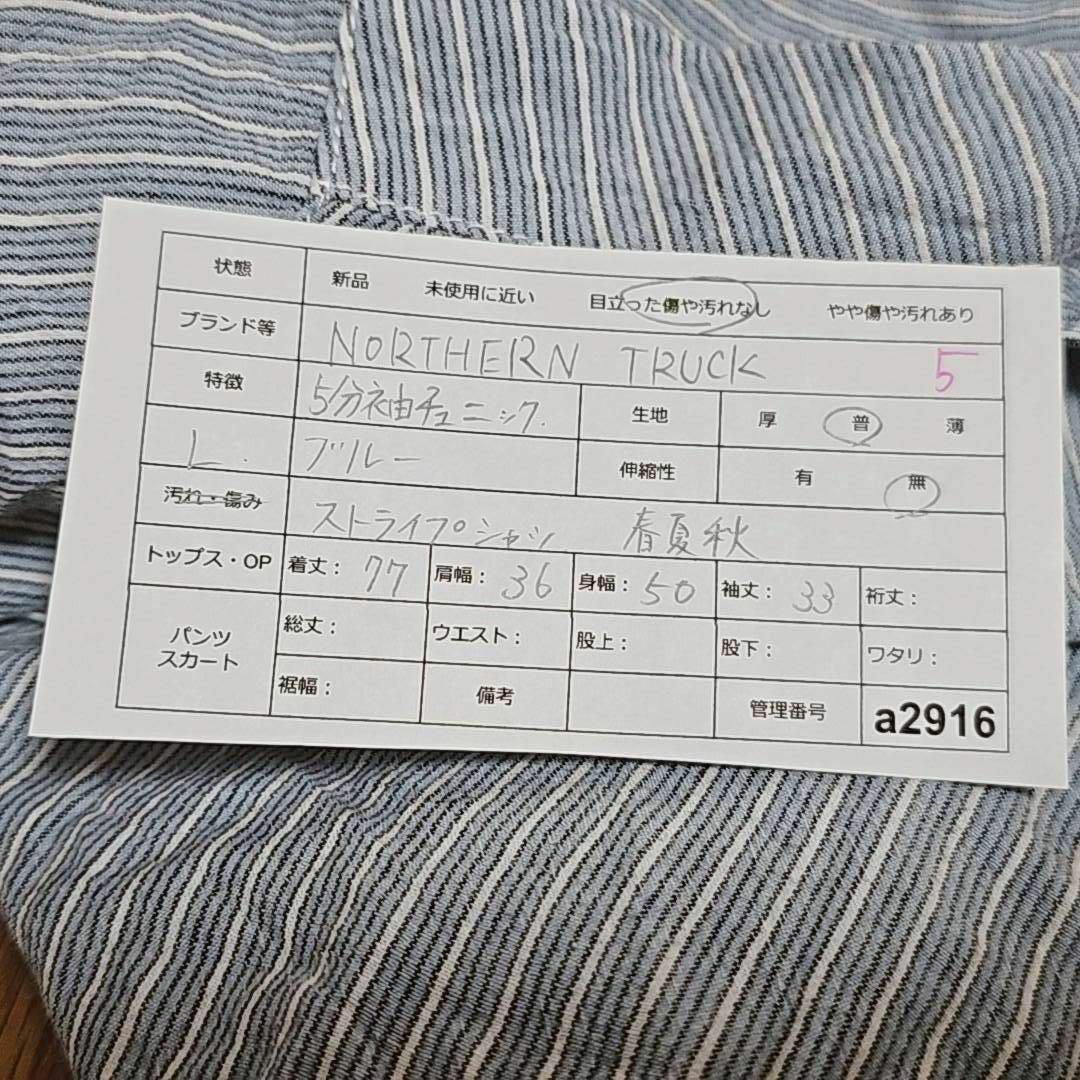 状態 新品 未使用に近い 目立った傷や汚れなし やや傷や汚れあり
ブランド等 NORTHERN TRUCK 5
特徴 5分袖チュニック. 生地 厚 普 薄
L. ブルー 伸縮性 有 無
汚れ・傷み ストライプシャツ 春夏秋
トップス・OP 着丈: 77 肩幅: 36 身幅: 50 袖丈: 33 裄丈:
パンツ スカート 総丈: ウエスト: 股上: 股下: ワタリ:
裾幅: 備考 管理番号 a2916